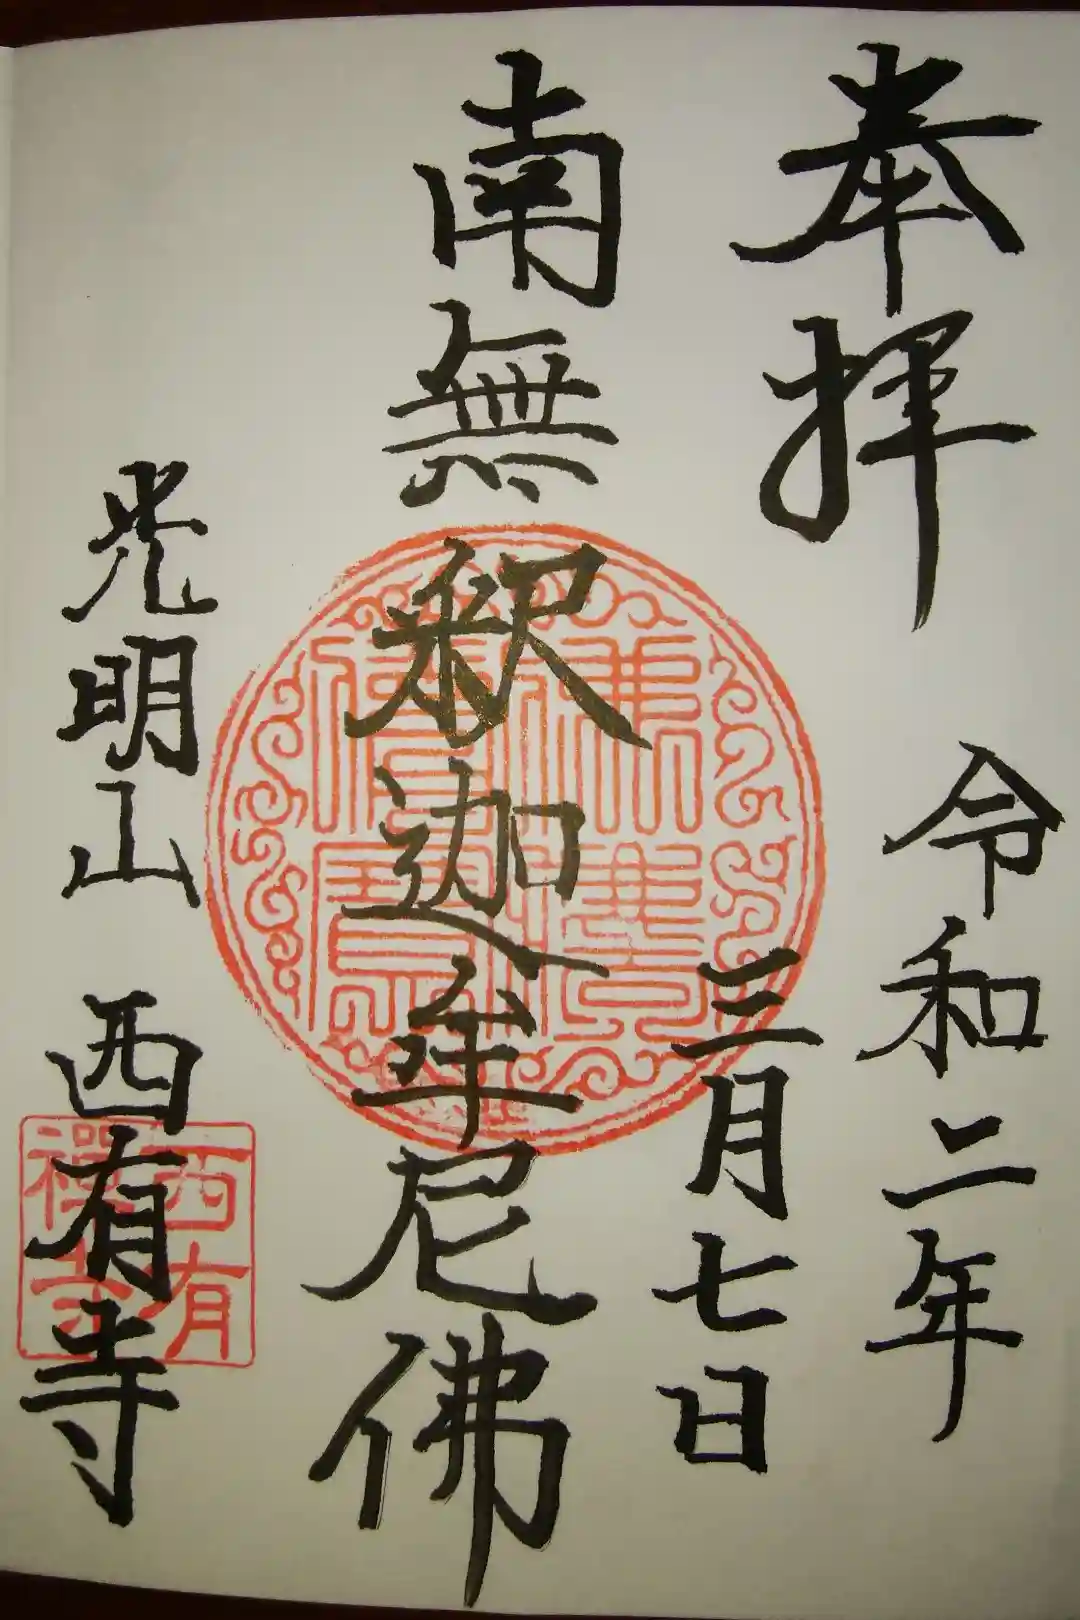 奉拝
令和二年
三月七日
南無釈迦牟尼佛
光明山 西有寺
佛法僧寶
西有禅寺